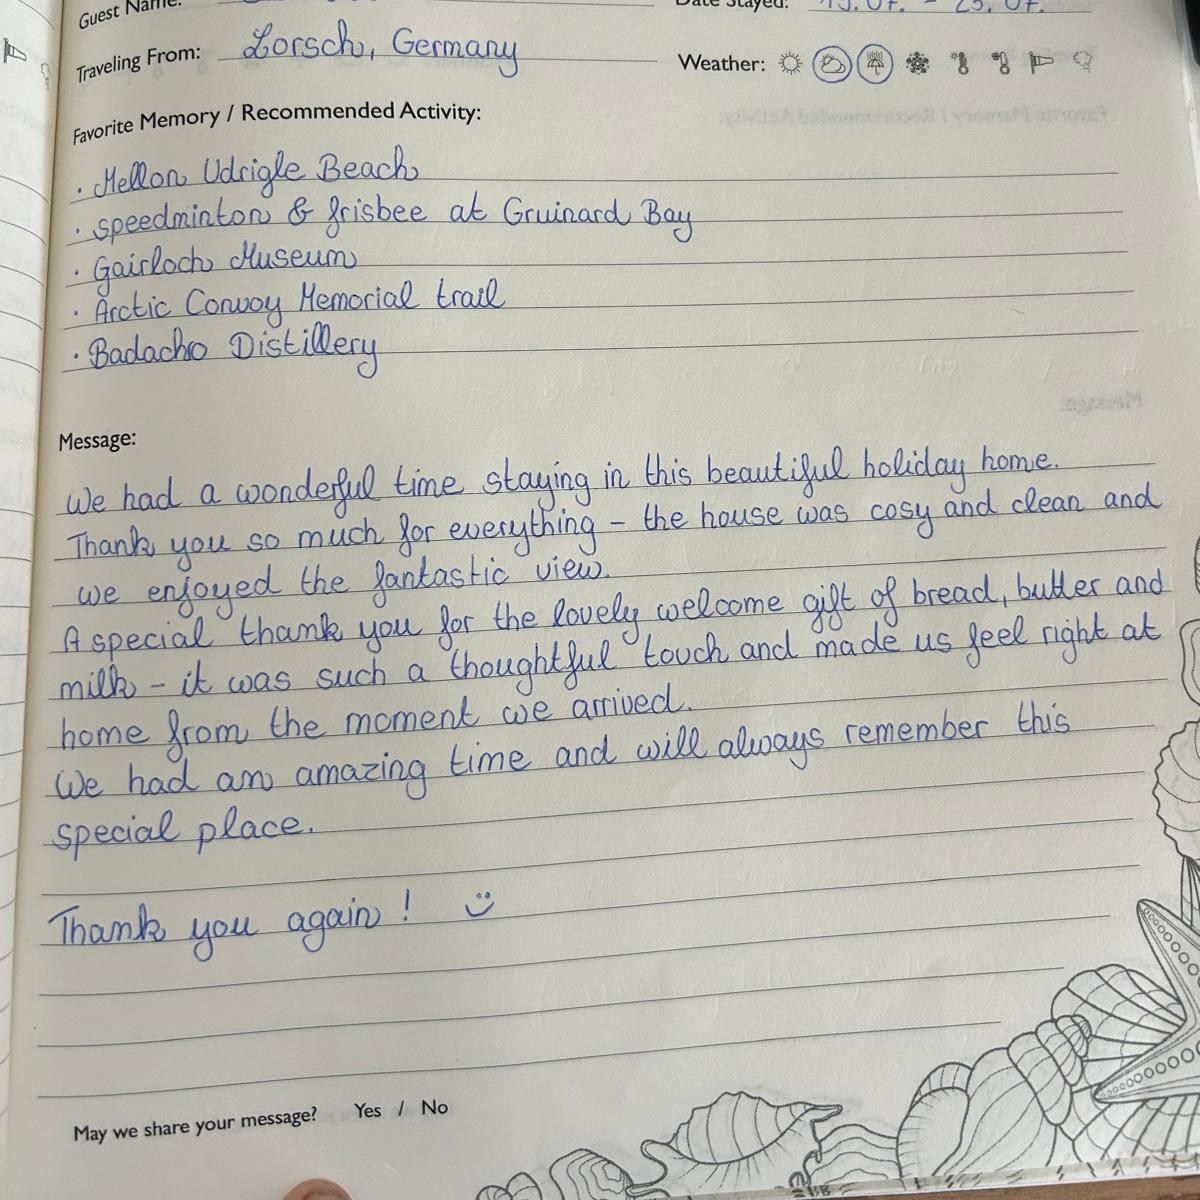 Guest Name:
Date Stayed: 19.07. - 25.07.
Traveling From: Lorsch, Germany
Weather:
Favorite Memory / Recommended Activity:
· Mellon Udrigle Beach
· speedminton & frisbee at Gruinard Bay
· Gairloch Museum
· Arctic Convoy Memorial trail
· Badachro Distillery
Message:
We had a wonderful time staying in this beautiful holiday home.
Thank you so much for everything – the house was cosy and clean and
we enjoyed the fantastic view.
A special thank you for the lovely welcome gift of bread, butter and
milk – it was such a thoughtful touch and made us feel right at
home from the moment we arrived.
We had an amazing time and will always remember this
special place.
Thank you again! :)
May we share your message? Yes / No